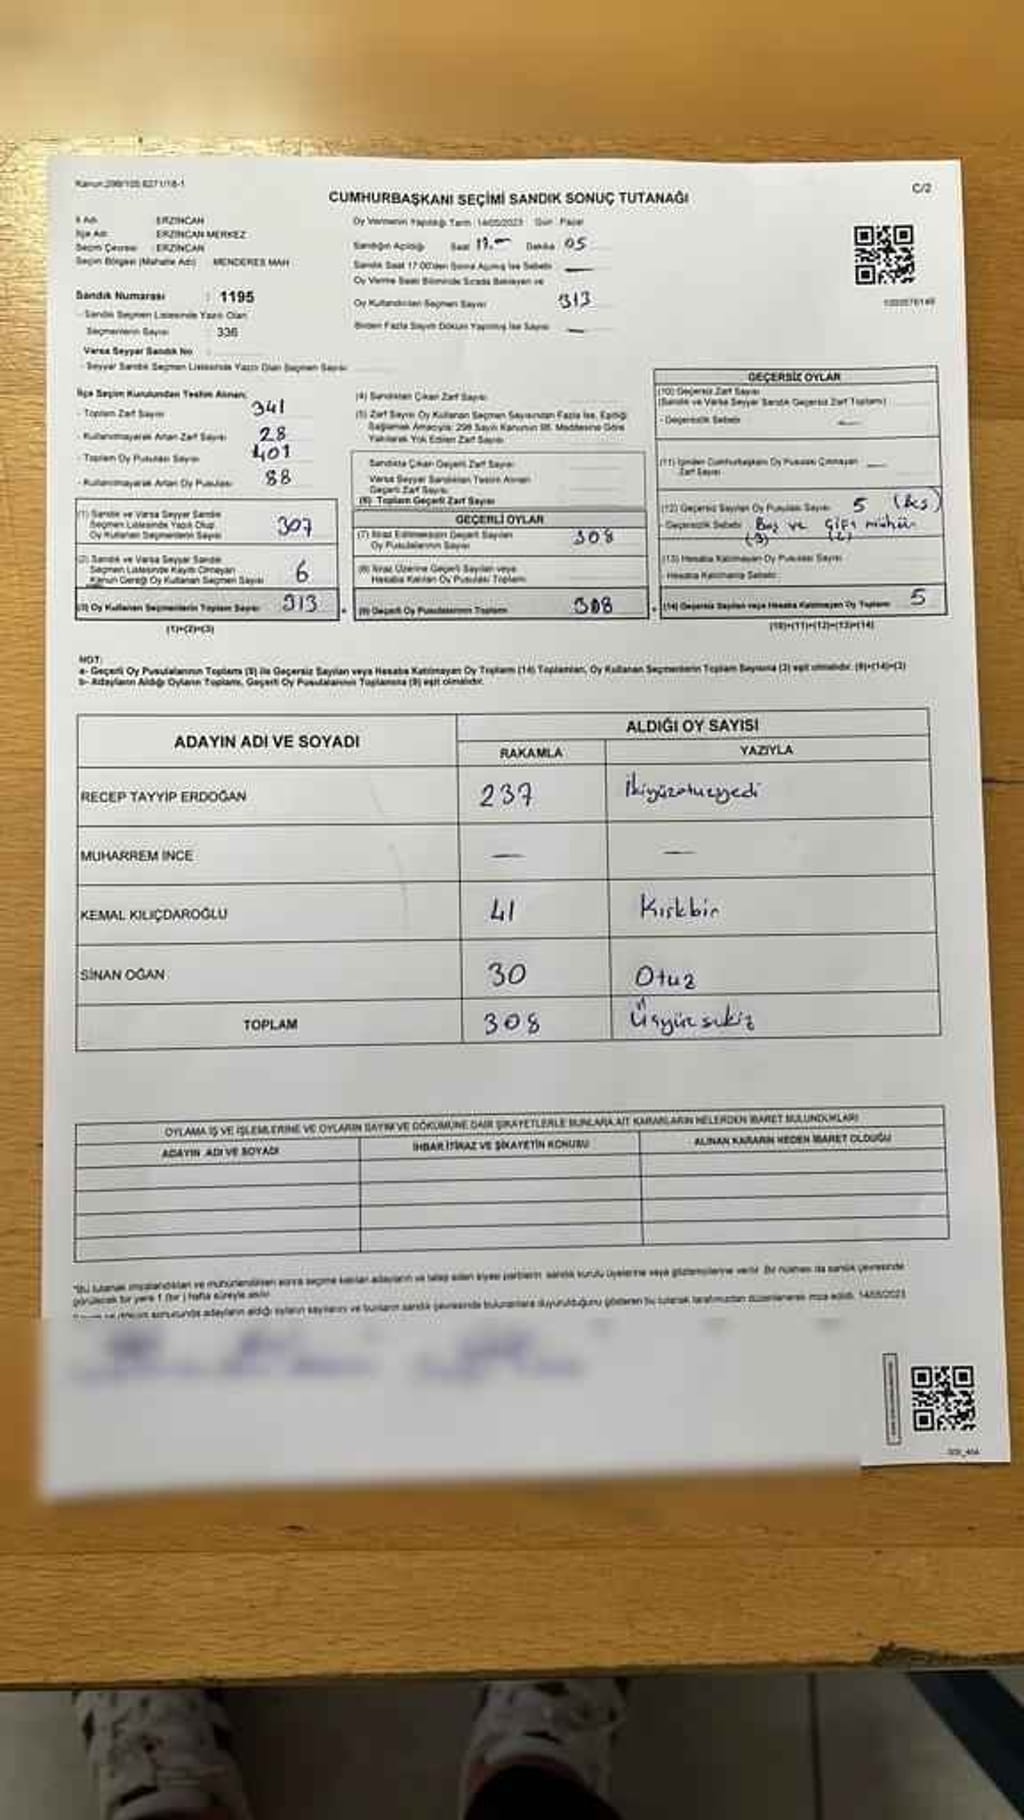 Kanun:298/105 6271/18-1
C/2
CUMHURBAŞKANI SEÇİMİ SANDIK SONUÇ TUTANAĞI
İl Adı : ERZİNCAN
İlçe Adı : ERZİNCAN MERKEZ
Seçim Çevresi : ERZİNCAN
Seçim Bölgesi (Mahalle Adı) : MENDERES MAH
Sandık Numarası : 1195
- Sandık Seçmen Listesinde Yazılı Olan
Seçmenlerin Sayısı : 336
Varsa Seyyar Sandık No :
- Seyyar Sandık Seçmen Listesinde Yazılı Olan Seçmen Sayısı:
Oy Vermenin Yapıldığı Tarih: 14/05/2023 Gün: Pazar
Sandığın Açıldığı Saat 17.- Dakika 05
Sandık Saat 17:00'den Sonra Açılmış İse Sebebi: —
Oy Verme Saati Bitiminde Sırada Bekleyen ve
Oy Kullandırılan Seçmen Sayısı: 313
Birden Fazla Sayım Döküm Yapılmış İse Sayısı: —
İlçe Seçim Kurulundan Teslim Alınan;
- Toplam Zarf Sayısı : 341
- Kullanılmayarak Artan Zarf Sayısı : 28
- Toplam Oy Pusulası Sayısı : 401
- Kullanılmayarak Artan Oy Pusulası : 88
(1) Sandık ve Varsa Seyyar Sandık
Seçmen Listesinde Yazılı Olup
Oy Kullanan Seçmenlerin Sayısı : 307
(2) Sandık ve Varsa Seyyar Sandık
Seçmen Listesinde Kayıtlı Olmayan
Kanun Gereği Oy Kullanan Seçmen Sayısı : 6
(3) Oy Kullanan Seçmenlerin Toplam Sayısı: 313
(1)+(2)=(3)
(4) Sandıktan Çıkan Zarf Sayısı:
(5) Zarf Sayısı Oy Kullanan Seçmen Sayısından Fazla İse, Eşitliği
Sağlamak Amacıyla; 298 Sayılı Kanunun 98. Maddesine Göre
Yakılarak Yok Edilen Zarf Sayısı:
Sandıkta Çıkan Geçerli Zarf Sayısı:
Varsa Seyyar Sandıktan Teslim Alınan
Geçerli Zarf Sayısı:
(6) Toplam Geçerli Zarf Sayısı:
GEÇERLİ OYLAR
(7) İtiraz Edilmeksizin Geçerli Sayılan
Oy Pusulalarının Sayısı : 308
(8) İtiraz Üzerine Geçerli Sayılan veya
Hesaba Katılan Oy Pusulası Toplamı:
(9) Geçerli Oy Pusulalarının Toplamı: 308
GEÇERSİZ OYLAR
(10) Geçersiz Zarf Sayısı
(Sandık ve Varsa Seyyar Sandık Geçersiz Zarf Toplamı)
- Geçersizlik Sebebi: —
(11) İçinden Cumhurbaşkanı Oy Pusulası Çıkmayan —
Zarf Sayısı:
(12) Geçersiz Sayılan Oy Pusulası Sayısı: 5 (Beş)
- Geçersizlik Sebebi: Boş ve Çift mühür
(3) (2)
(13) Hesaba Katılmayan Oy Pusulası Sayısı:
- Hesaba Katılmama Sebebi:
(14) Geçersiz Sayılan veya Hesaba Katılmayan Oy Toplamı: 5
(10)+(11)+(12)+(13)=(14)
NOT:
a- Geçerli Oy Pusulalarının Toplamı (9) ile Geçersiz Sayılan veya Hesaba Katılmayan Oy Toplamı (14) Toplamları, Oy Kullanan Seçmenlerin Toplam Sayısına (3) eşit olmalıdır. (9)+(14)=(3)
b- Adayların Aldığı Oyların Toplamı, Geçerli Oy Pusulalarının Toplamına (9) eşit olmalıdır.
ADAYIN ADI VE SOYADI
ALDIĞI OY SAYISI
RAKAMLA YAZIYLA
RECEP TAYYİP ERDOĞAN 237 İkiyüzotuzyedi
MUHARREM İNCE — —
KEMAL KILIÇDAROĞLU 41 Kırkbir
SİNAN OĞAN 30 Otuz
TOPLAM 308 Üçyüz sekiz
OYLAMA İŞ VE İŞLEMLERİNE VE OYLARIN SAYIM VE DÖKÜMÜNE DAİR ŞİKAYETLERLE BUNLARA AİT KARARLARIN NELERDEN İBARET BULUNDUKLARI
ADAYIN ADI VE SOYADI İHBAR İTİRAZ VE ŞİKAYETİN KONUSU ALINAN KARARIN NEDEN İBARET OLDUĞU
*Bu tutanak imzalandıktan ve mühürlendikten sonra seçime katılan adayların ve talep eden siyasi partilerin sandık kurulu üyelerine veya gözlemcilerine verilir. Bir nüshası da sandık çevresinde
görülecek bir yere 1 (bir) hafta süreyle asılır.
döküm sonucunda adayların aldığı oyların sayılarını ve bunların sandık çevresinde bulunanlara duyurulduğunu gösteren bu tutanak tarafımızdan düzenlenerek imza edildi. 14/05/2023